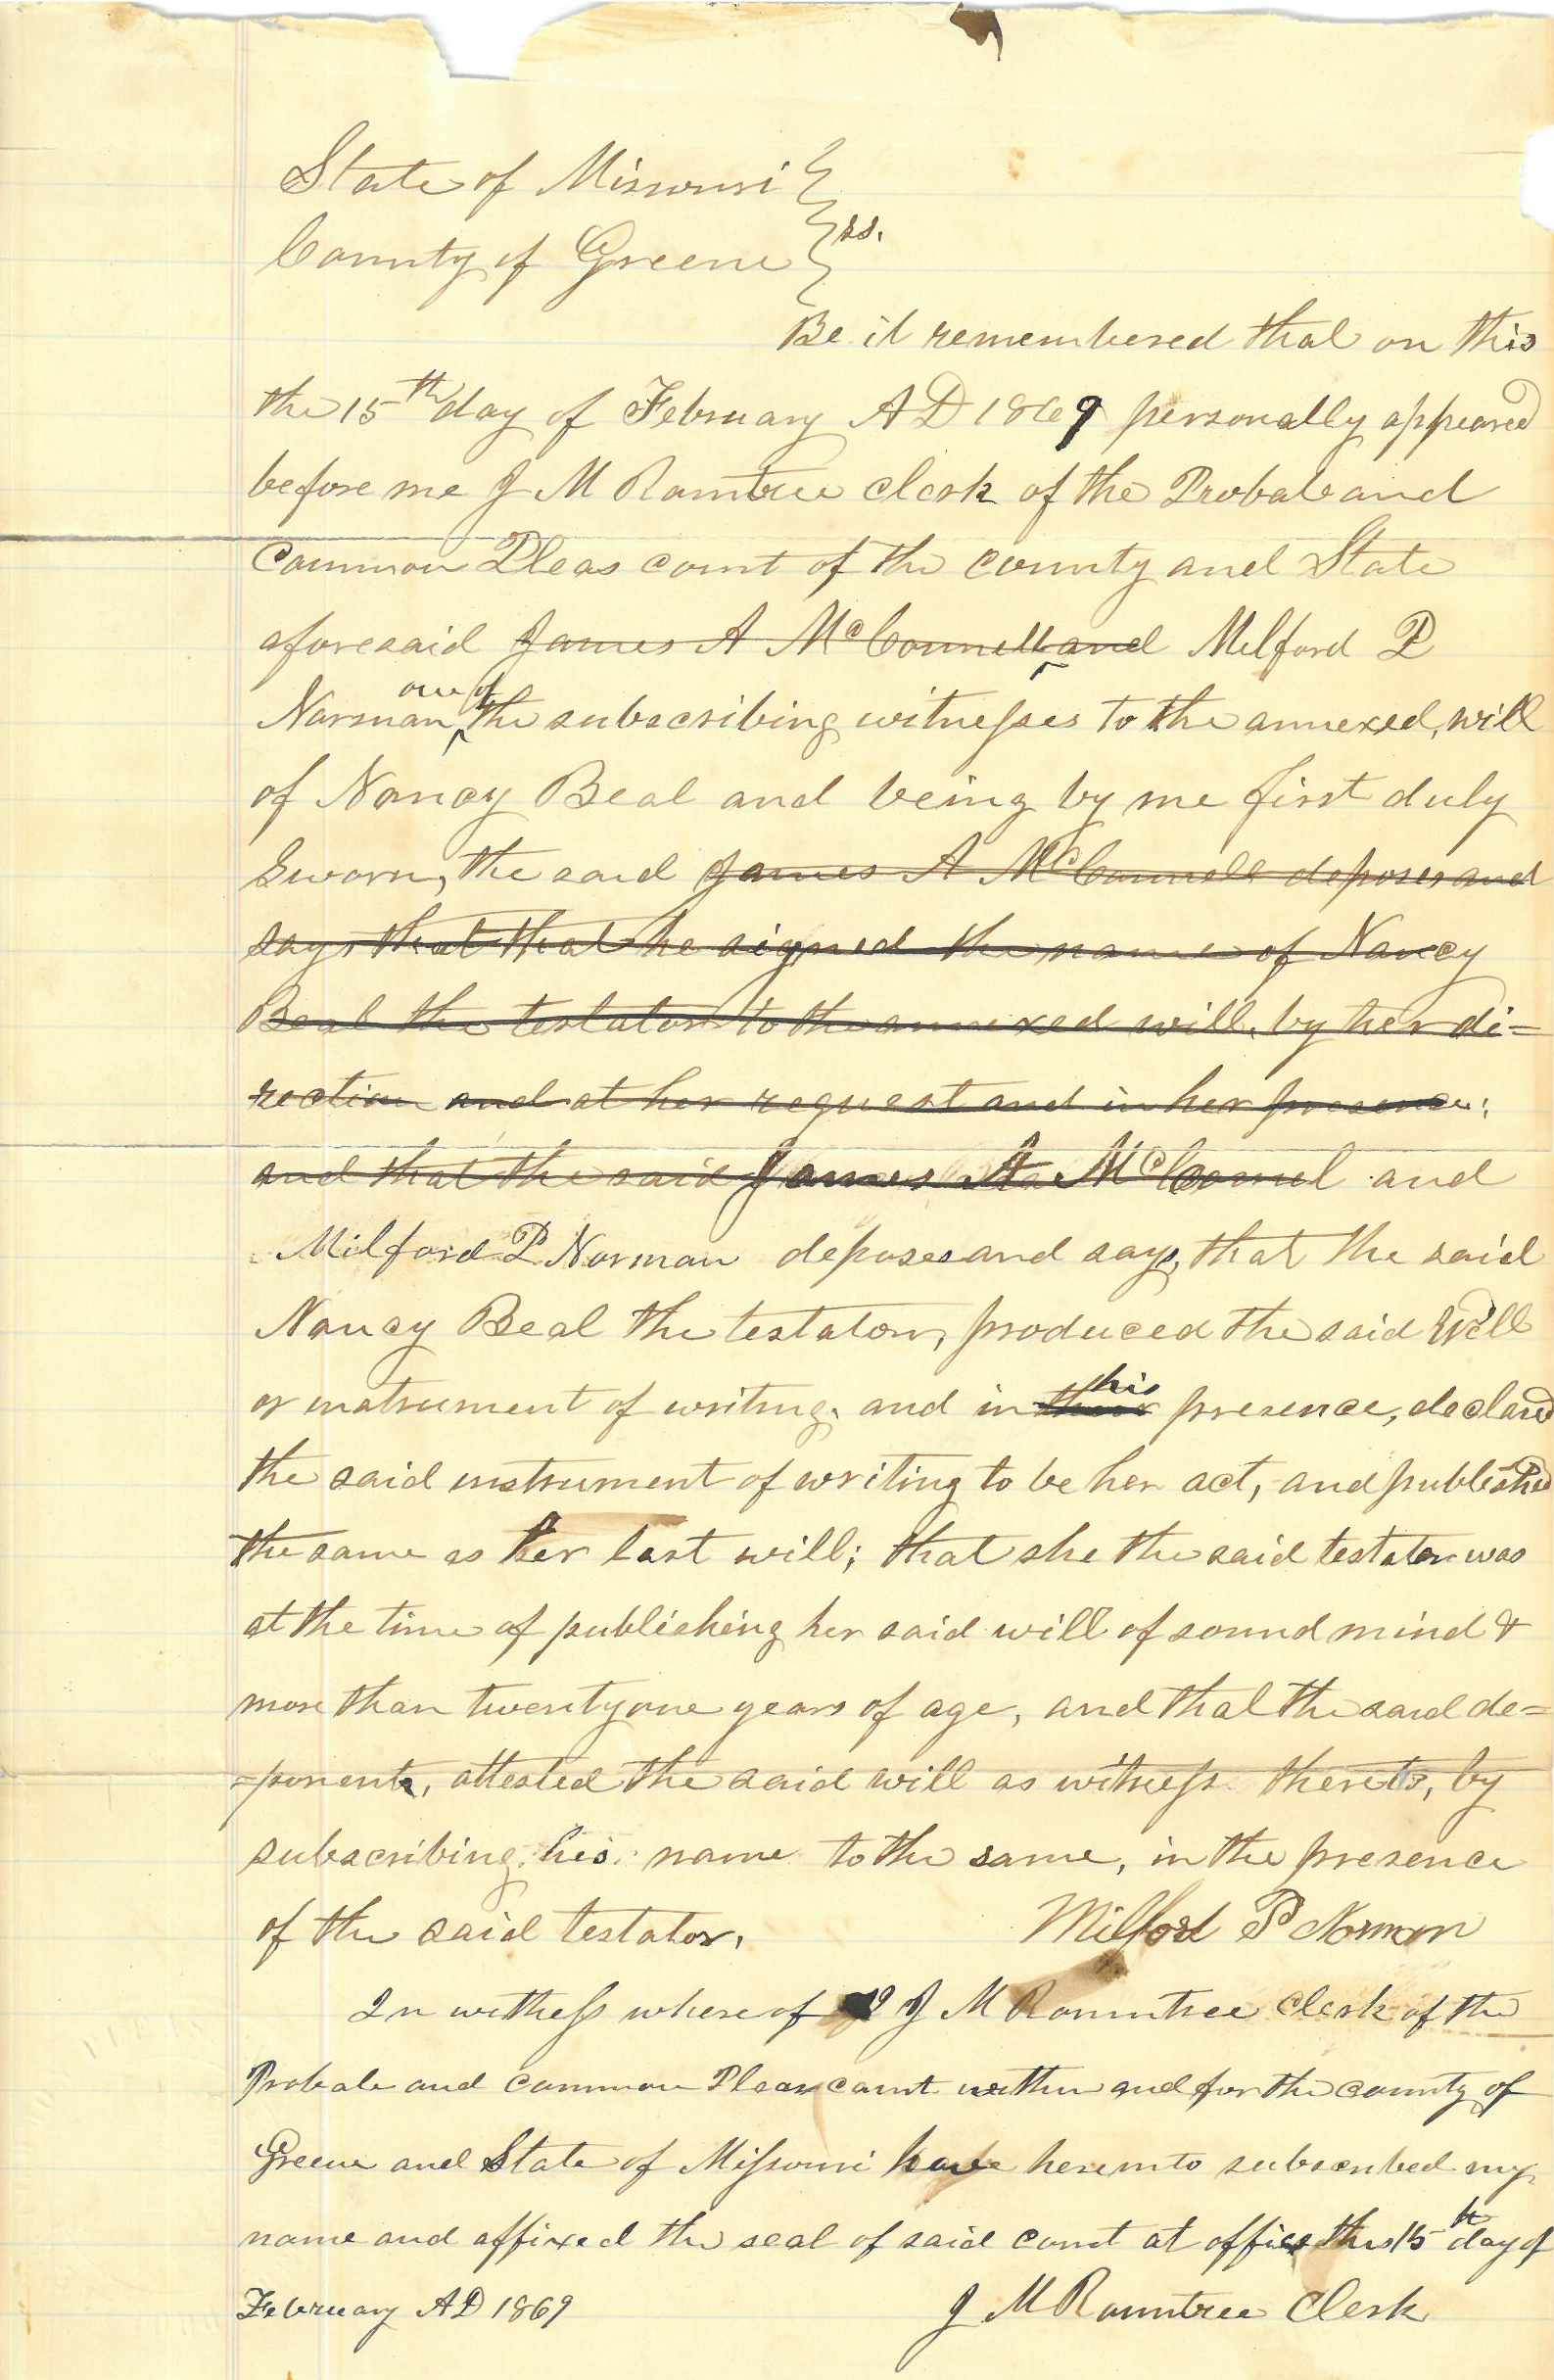 State of Missouri }
County of Greene } ss.
Be it remembered that on this
the 15th day of February AD 1869 personally appeared
before me J M Rountree clerk of the Probate and
Common Pleas court of the county and State
aforesaid James A McConnell and Milford P
Norman one of the subscribing witnesses to the annexed, will
of Nancy Beal and being by me first duly
Sworn, the said James A McConnell deposes and
says that that he signed the name of Nancy
Beal the testator to the annexed will, by her di=
rection and at her request and in her presence;
and that the said James A McConnel and
Milford P Norman deposes and says, that the said
Nancy Beal the testator, produced the said Will
or instrument of writing, and in their his presence, declared
the said instrument of writing to be her act, and published
the same as her last will; that she the said testator was
at the time of publishing her said will of sound mind &
more than twenty one years of age, and that the said de=
=ponent, attested the said will as witness thereto, by
subscribing his name to the same, in the presence
of the said testator. Milford P Norman
In witness where of I J M Rountree Clerk of the
Probate and common Pleas court within and for the county of
Greene and State of Missouri have hereunto subscribed my
name and affixed the seal of said court at office this 15th day of
February AD 1869 J M Rountree Clerk